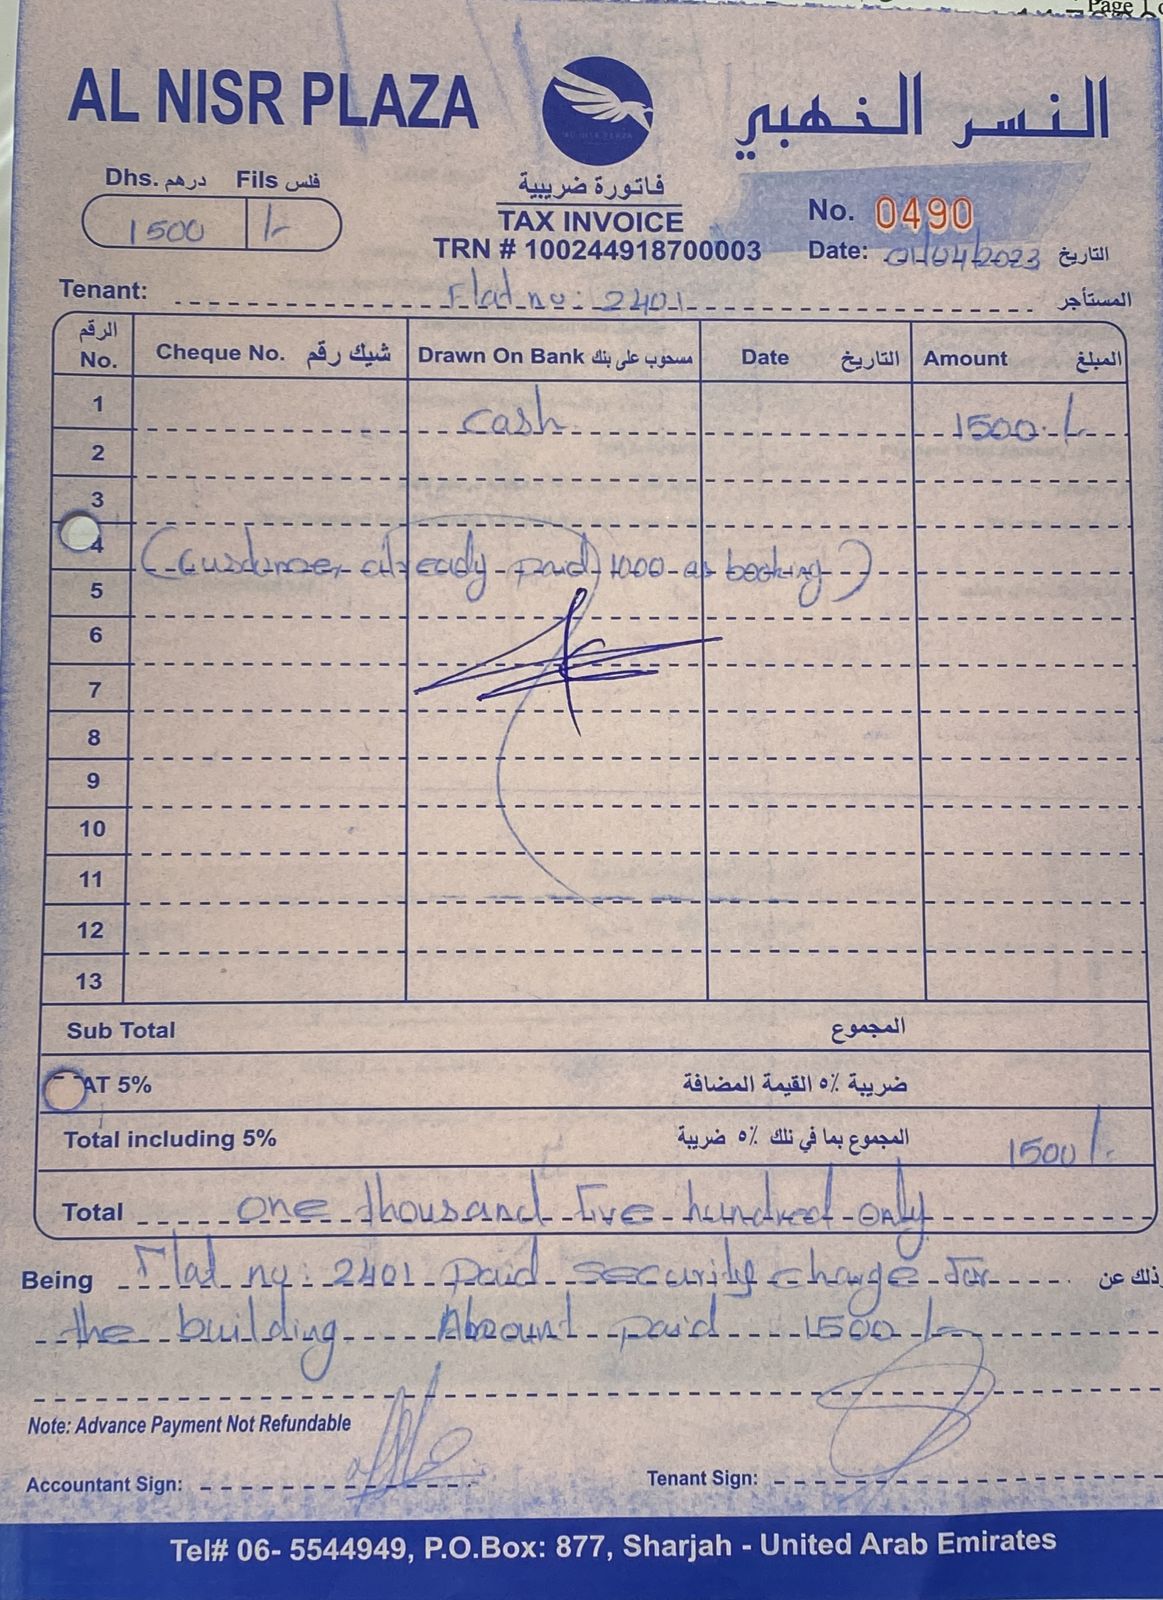 Page 1
AL NISR PLAZA
النسر الذهبي
Dhs. درهم Fils فلس
1500 /-
فاتورة ضريبية
TAX INVOICE
TRN # 100244918700003
No. 0490
Date: 01/04/2023 التاريخ
Tenant: Flat no: 2401 المستأجر
الرقم No. Cheque No. شيك رقم Drawn On Bank مسحوب على بنك Date التاريخ Amount المبلغ
1 cash 1500/-
2
3
4 already paid 1000 as booking)
5
6
7
8
9
10
11
12
13
Sub Total المجموع
AT 5% ضريبة ٥٪ القيمة المضافة
Total including 5% المجموع بما في ذلك ٥٪ ضريبة 1500/-
Total one thousand five hundred only
Being Flat no: 2401 paid security charge for ذلك عن
the building Amount paid 1500/-
Note: Advance Payment Not Refundable
Accountant Sign:
Tenant Sign:
Tel# 06- 5544949, P.O.Box: 877, Sharjah - United Arab Emirates